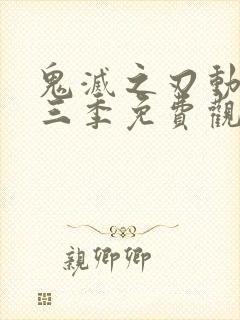 鬼滅之刃動
三季免費觀
親卿卿